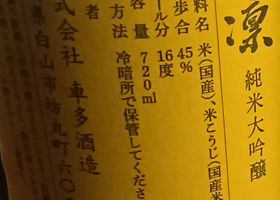 凛
純米大吟醸
料名 米(国産)、米こうじ(国産米
歩合 45%
ール分 16度
容量 720ml
方法 冷暗所で保管してくださ
者
式会社 車多酒造
県白山市坊丸町六〇